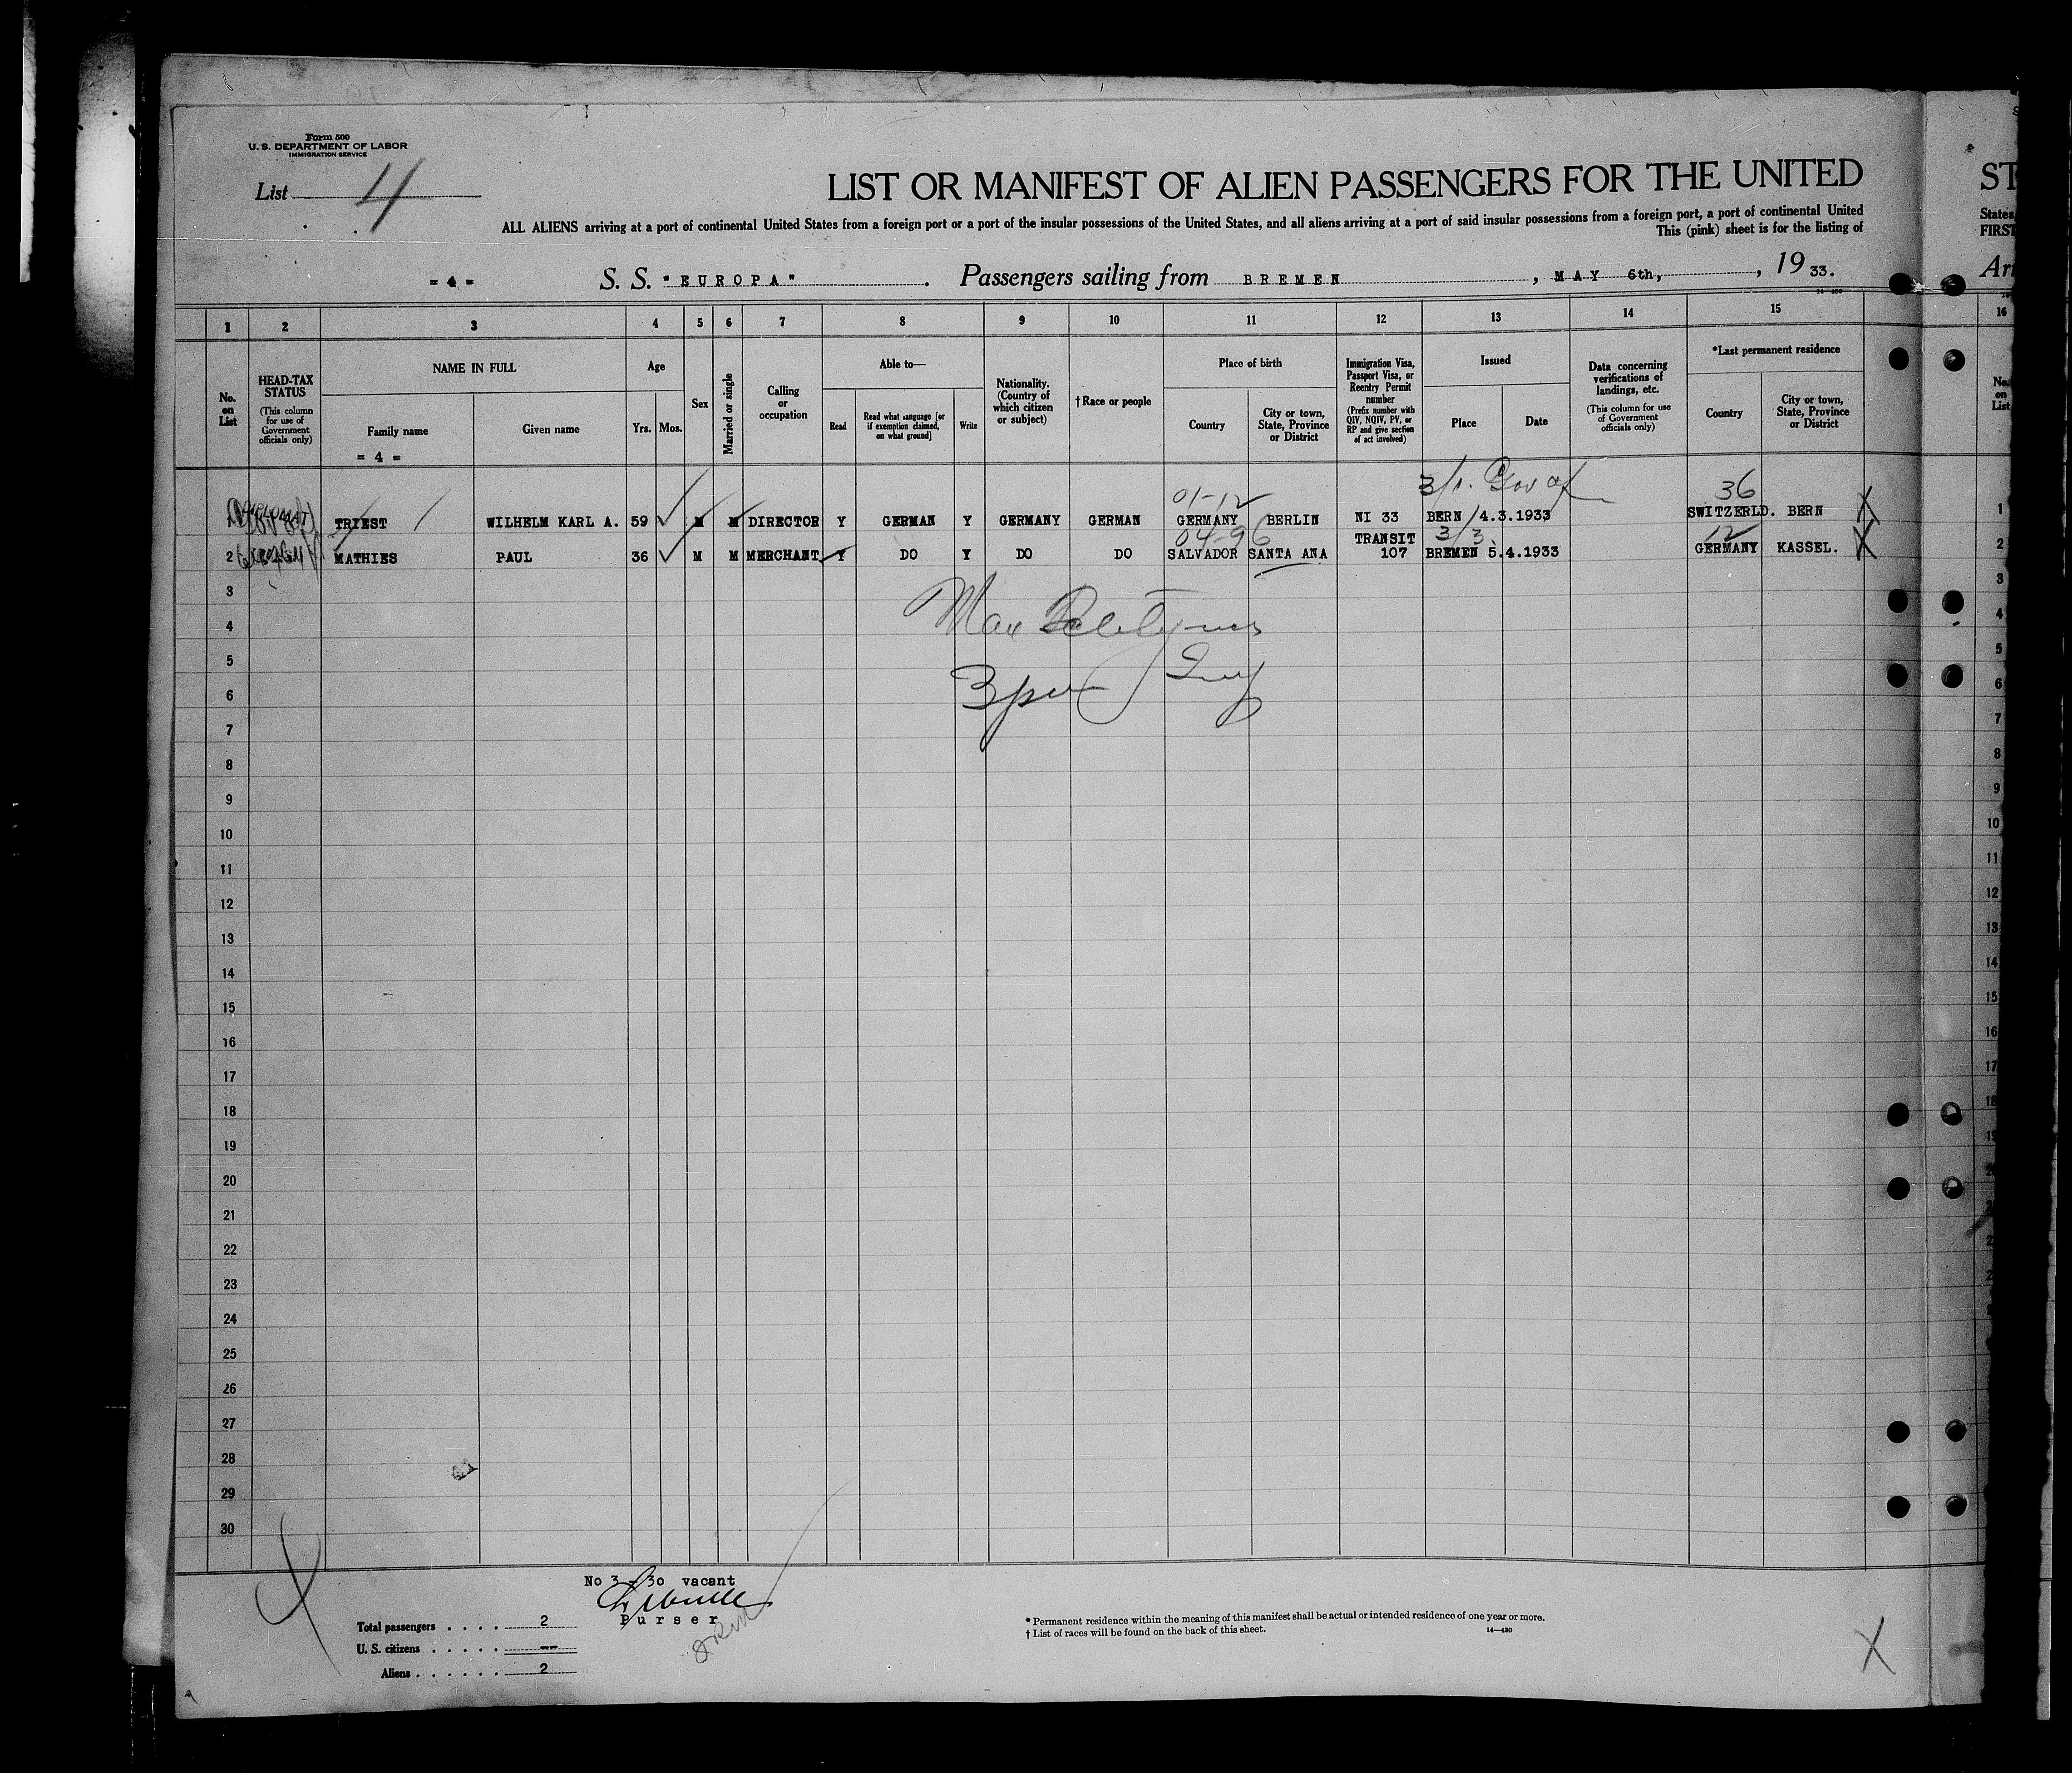 Form 500
U. S. DEPARTMENT OF LABOR
IMMIGRATION SERVICE
List 4
LIST OR MANIFEST OF ALIEN PASSENGERS FOR THE UNITED
ST
ALL ALIENS arriving at a port of continental United States from a foreign port or a port of the insular possessions of the United States, and all aliens arriving at a port of said insular possessions from a foreign port, a port of continental United
States,
This (pink) sheet is for the listing of
FIRST
= 4 = S. S. "EUROPA". Passengers sailing from BREMEN, MAY 6th, , 19 33.
Arr
14—430
1 2 3 4 5 6 7 8 9 10 11 12 13 14 15 16
No. on List
HEAD-TAX STATUS
(This column for use of Government officials only)
NAME IN FULL
Family name
= 4 =
Given name
Age
Yrs. Mos.
Sex
Married or single
Calling or occupation
Able to—
Read
Read what language [or if exemption claimed, on what ground]
Write
Nationality. (Country of which citizen or subject)
†Race or people
Place of birth
Country
City or town, State, Province or District
Immigration Visa, Passport Visa, or Reentry Permit number
(Prefix number with QIV, NQIV, PV, or RP and give section of act involved)
Issued
Place
Date
Data concerning verifications of landings, etc.
(This column for use of Government officials only)
*Last permanent residence
Country
City or town, State, Province or District
No. on List
3/1. Gov of
01-12 36
1 DIPLOMAT TRIEST WILHELM KARL A. 59 M M DIRECTOR Y GERMAN Y GERMANY GERMAN GERMANY BERLIN NI 33 BERN 4.3.1933 SWITZERLD. BERN X 1
04-96 TRANSIT 3/3. 12
2 MATHIES PAUL 36 M M MERCHANT Y DO Y DO DO SALVADOR SANTA ANA 107 BREMEN 5.4.1933 GERMANY KASSEL. X 2
3 3
4 Max 4
5 5
6 6
7 7
8 8
9 9
10 10
11 11
12 12
13 13
14 14
15 15
16 16
17 17
18 18
19
20
21
22
23
24
25
26
27
28
29
30
No 3 - 30 vacant
Purser
Total passengers . . . . . 2
U. S. citizens . . . . . --
Aliens . . . . . . 2
* Permanent residence within the meaning of this manifest shall be actual or intended residence of one year or more.
† List of races will be found on the back of this sheet. 14—430
X